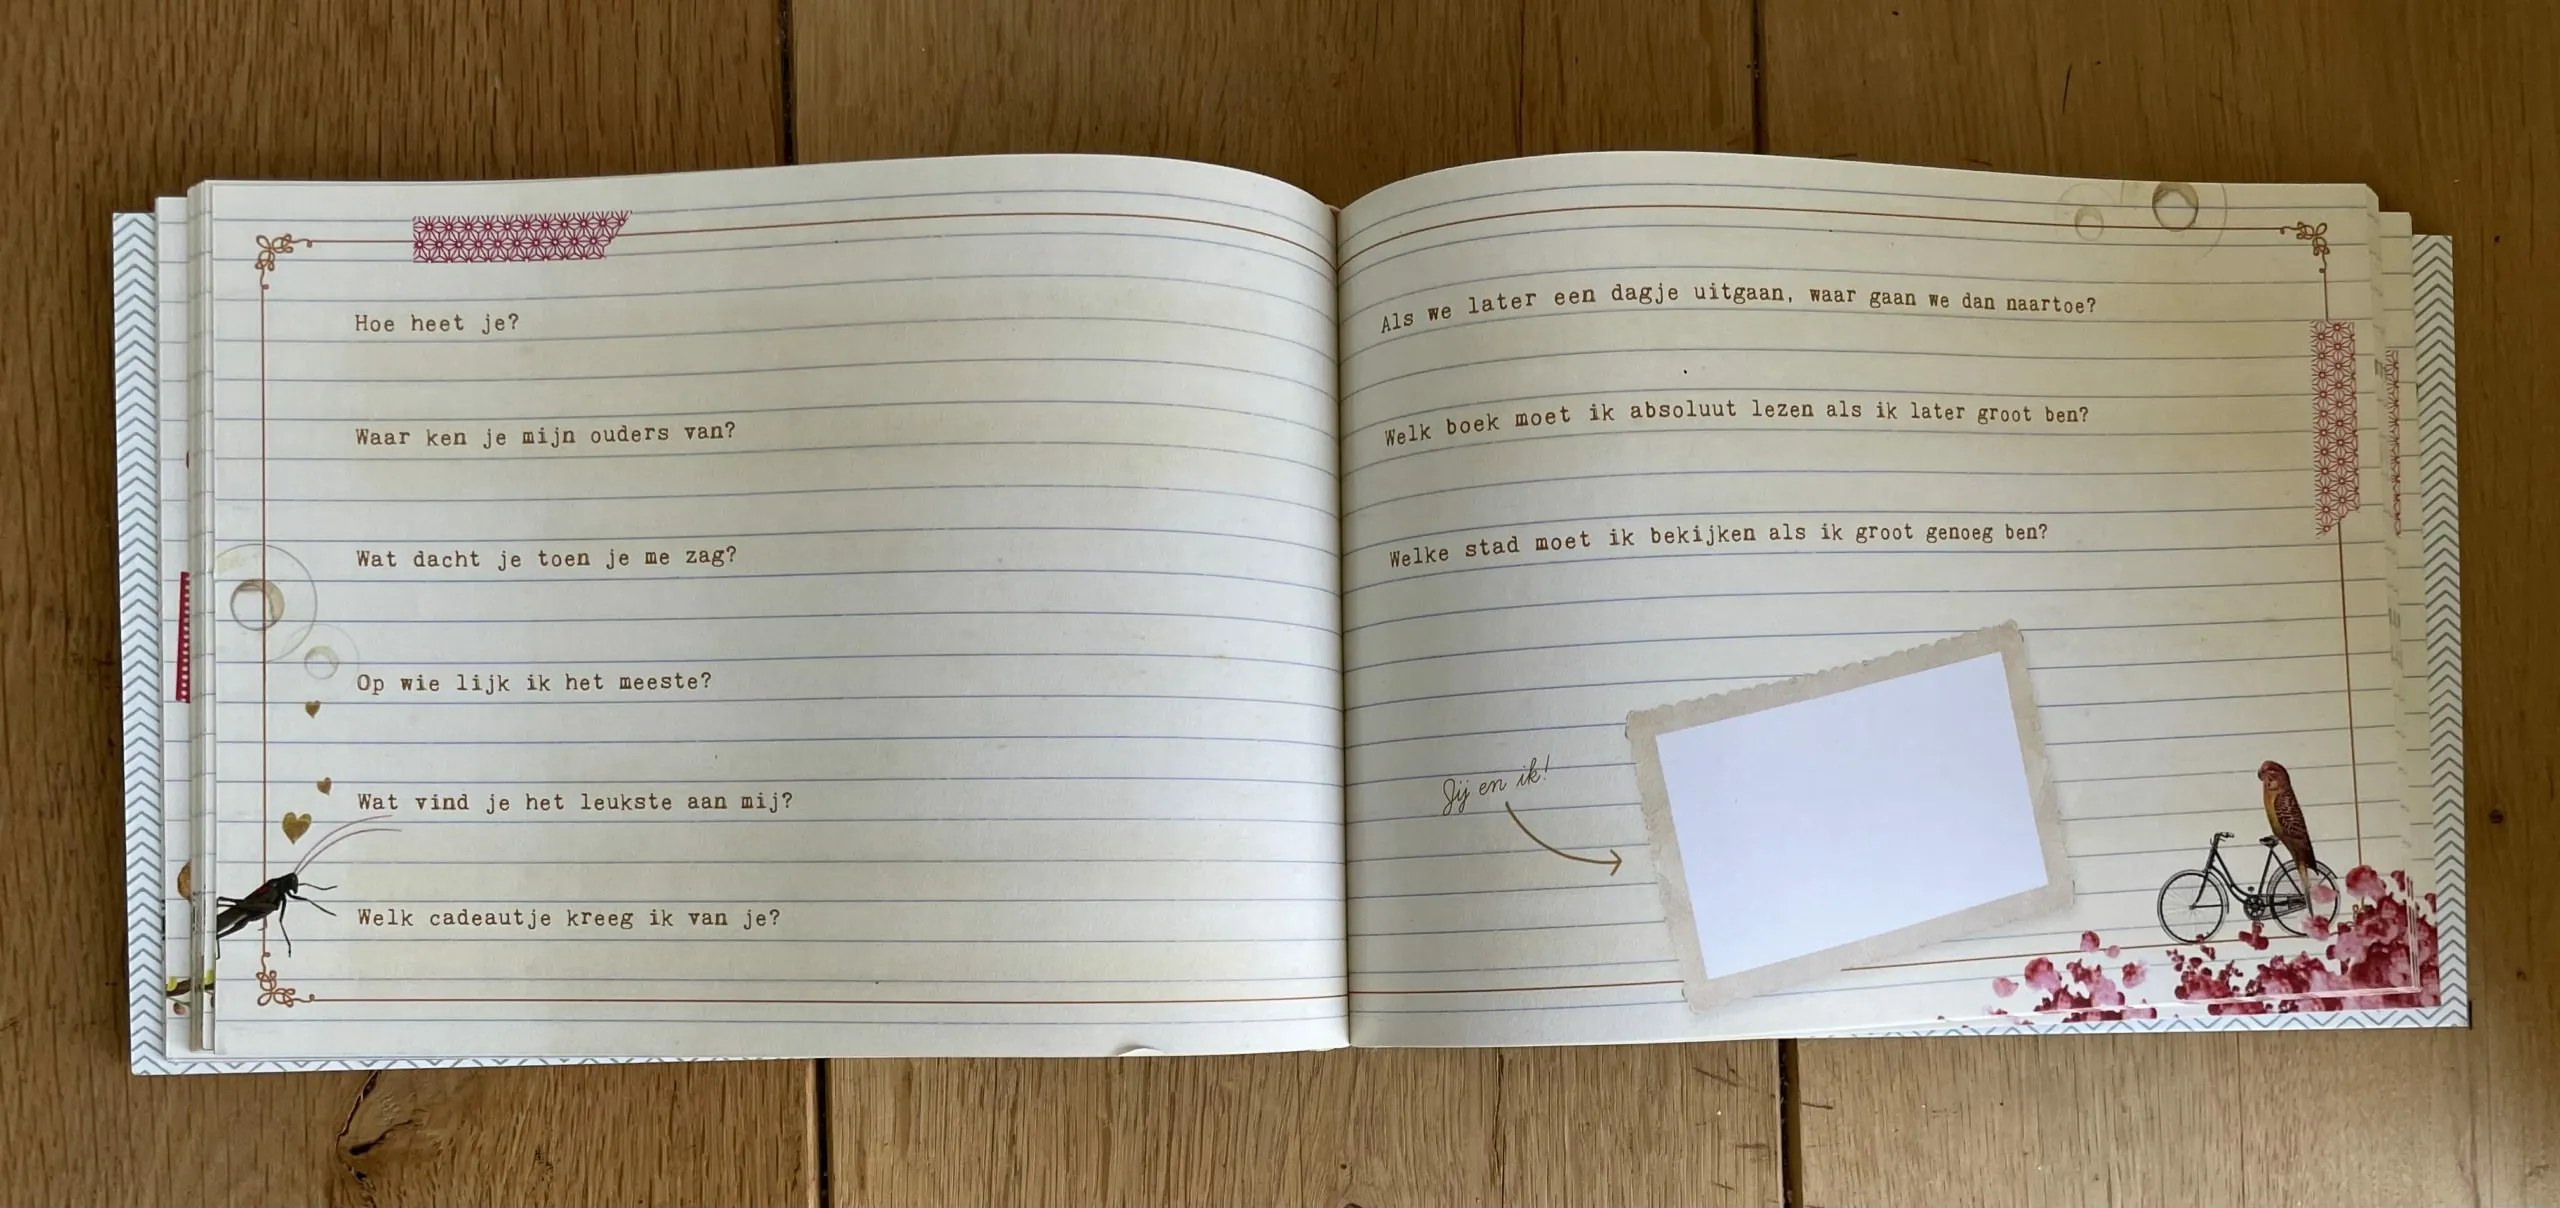 Hoe heet je?
Waar ken je mijn ouders van?
Wat dacht je toen je me zag?
Op wie lijk ik het meeste?
Wat vind je het leukste aan mij?
Welk cadeautje kreeg ik van je?
Als we later een dagje uitgaan, waar gaan we dan naartoe?
Welk boek moet ik absoluut lezen als ik later groot ben?
Welke stad moet ik bekijken als ik groot genoeg ben?
Jij en ik!